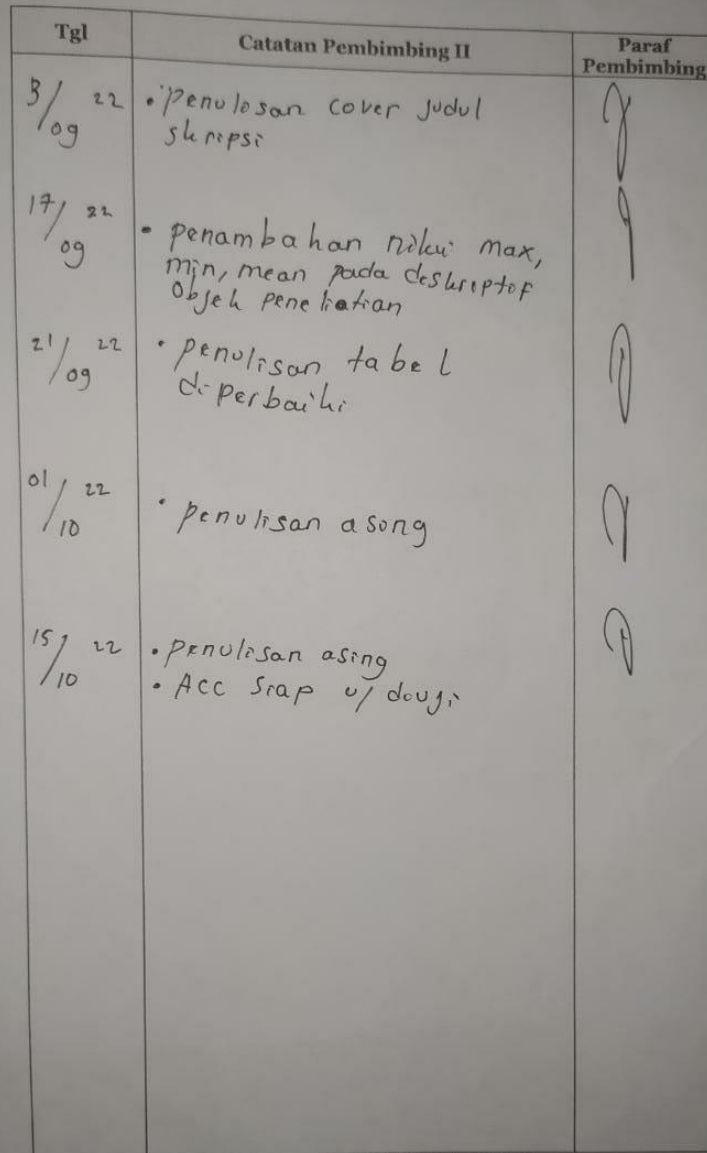 Tgl Catatan Pembimbing II Paraf
Pembimbing
3/09 22 • Penulosan cover judul
skripsi
17/09 22 • penambahan nilai max,
min, mean pada deskriptof
Objek penelitian
21/09 22 • penulisan tabel
diperbaiki
01/10 22 • penulisan asong
15/10 22 • penulisan asing
• Acc Siap u/ dougi